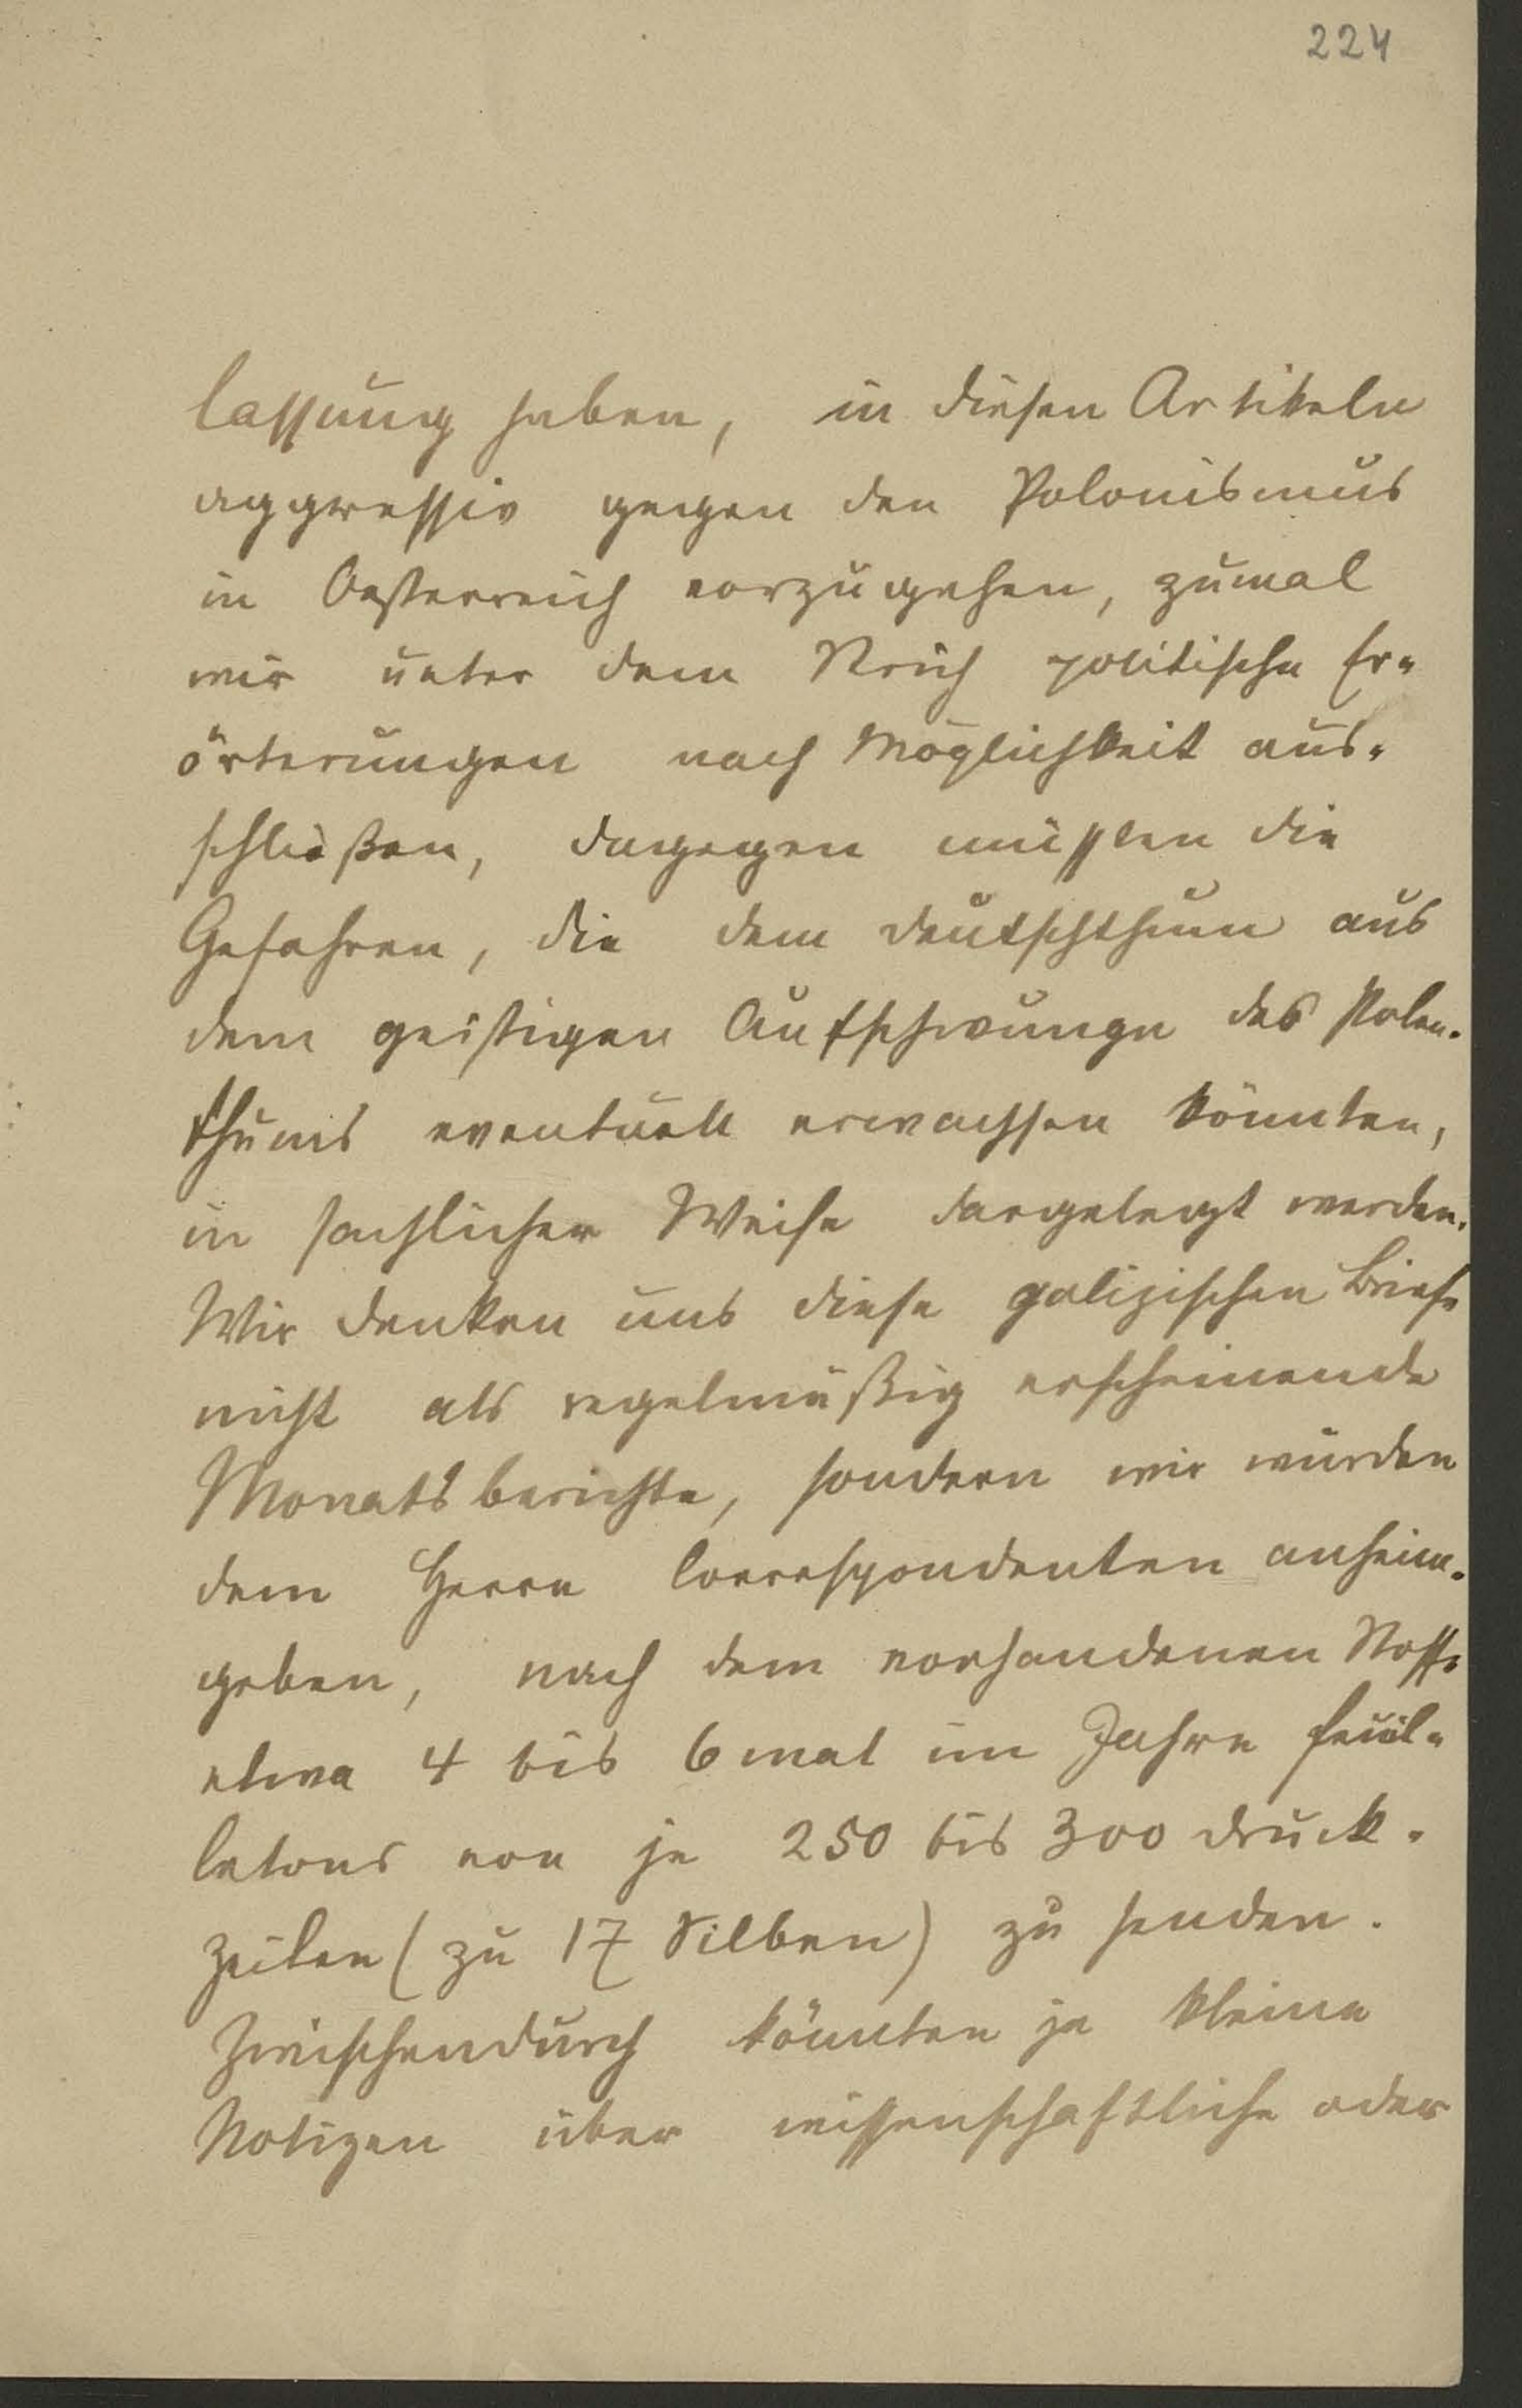 224
lassung haben, in diesen Artikeln
aggressiv gegen den Polonismus
in Oesterreich vorzugehen, zumal
wir unter dem Strich politische Er-
örterungen nach Möglichkeit aus-
schließen, dagegen müssten die
Gefahren, die dem Deutschthum aus
dem geistigen Aufschwunge des Polen-
thums eventuell erwachsen könnten,
in sachlicher Weise dargelegt werden.
Wir denken uns diese galizischen Briefe
nicht als regelmäßig erscheinende
Monatsberichte, sondern wir würden
dem Herrn Correspondenten anheim-
geben, nach dem vorhandenen Stoffe
etwa 4 bis 6 mal im Jahre Feuil-
letons von je 250 bis 300 Druck-
zeilen (zu 17 Silben) zu senden.
Zwischendurch könnten ja kleine
Notizen über wissenschaftliche oder